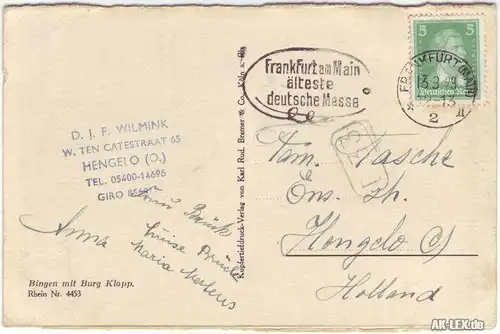 Frankfurt am Main
älteste
deutsche Messe
5 5
Deutsches Reich
FRANKFURT (MAIN)
2
D. J. F. WILMINK
W. TEN CATESTRAAT 65
HENGELO (O.)
TEL. 05400-14696
GIRO
Anna Brück
Luise Brück
Maria Mertens
Anna
Bingen mit Burg Klopp.
Rhein Nr. 4453
Kupfertiefdruck-Verlag von Karl Rud. Bremer & Co. Köln a. Rh.
Fam. Tasche
Ens. Str.
Hengelo O/
Holland
AK-LEX.de